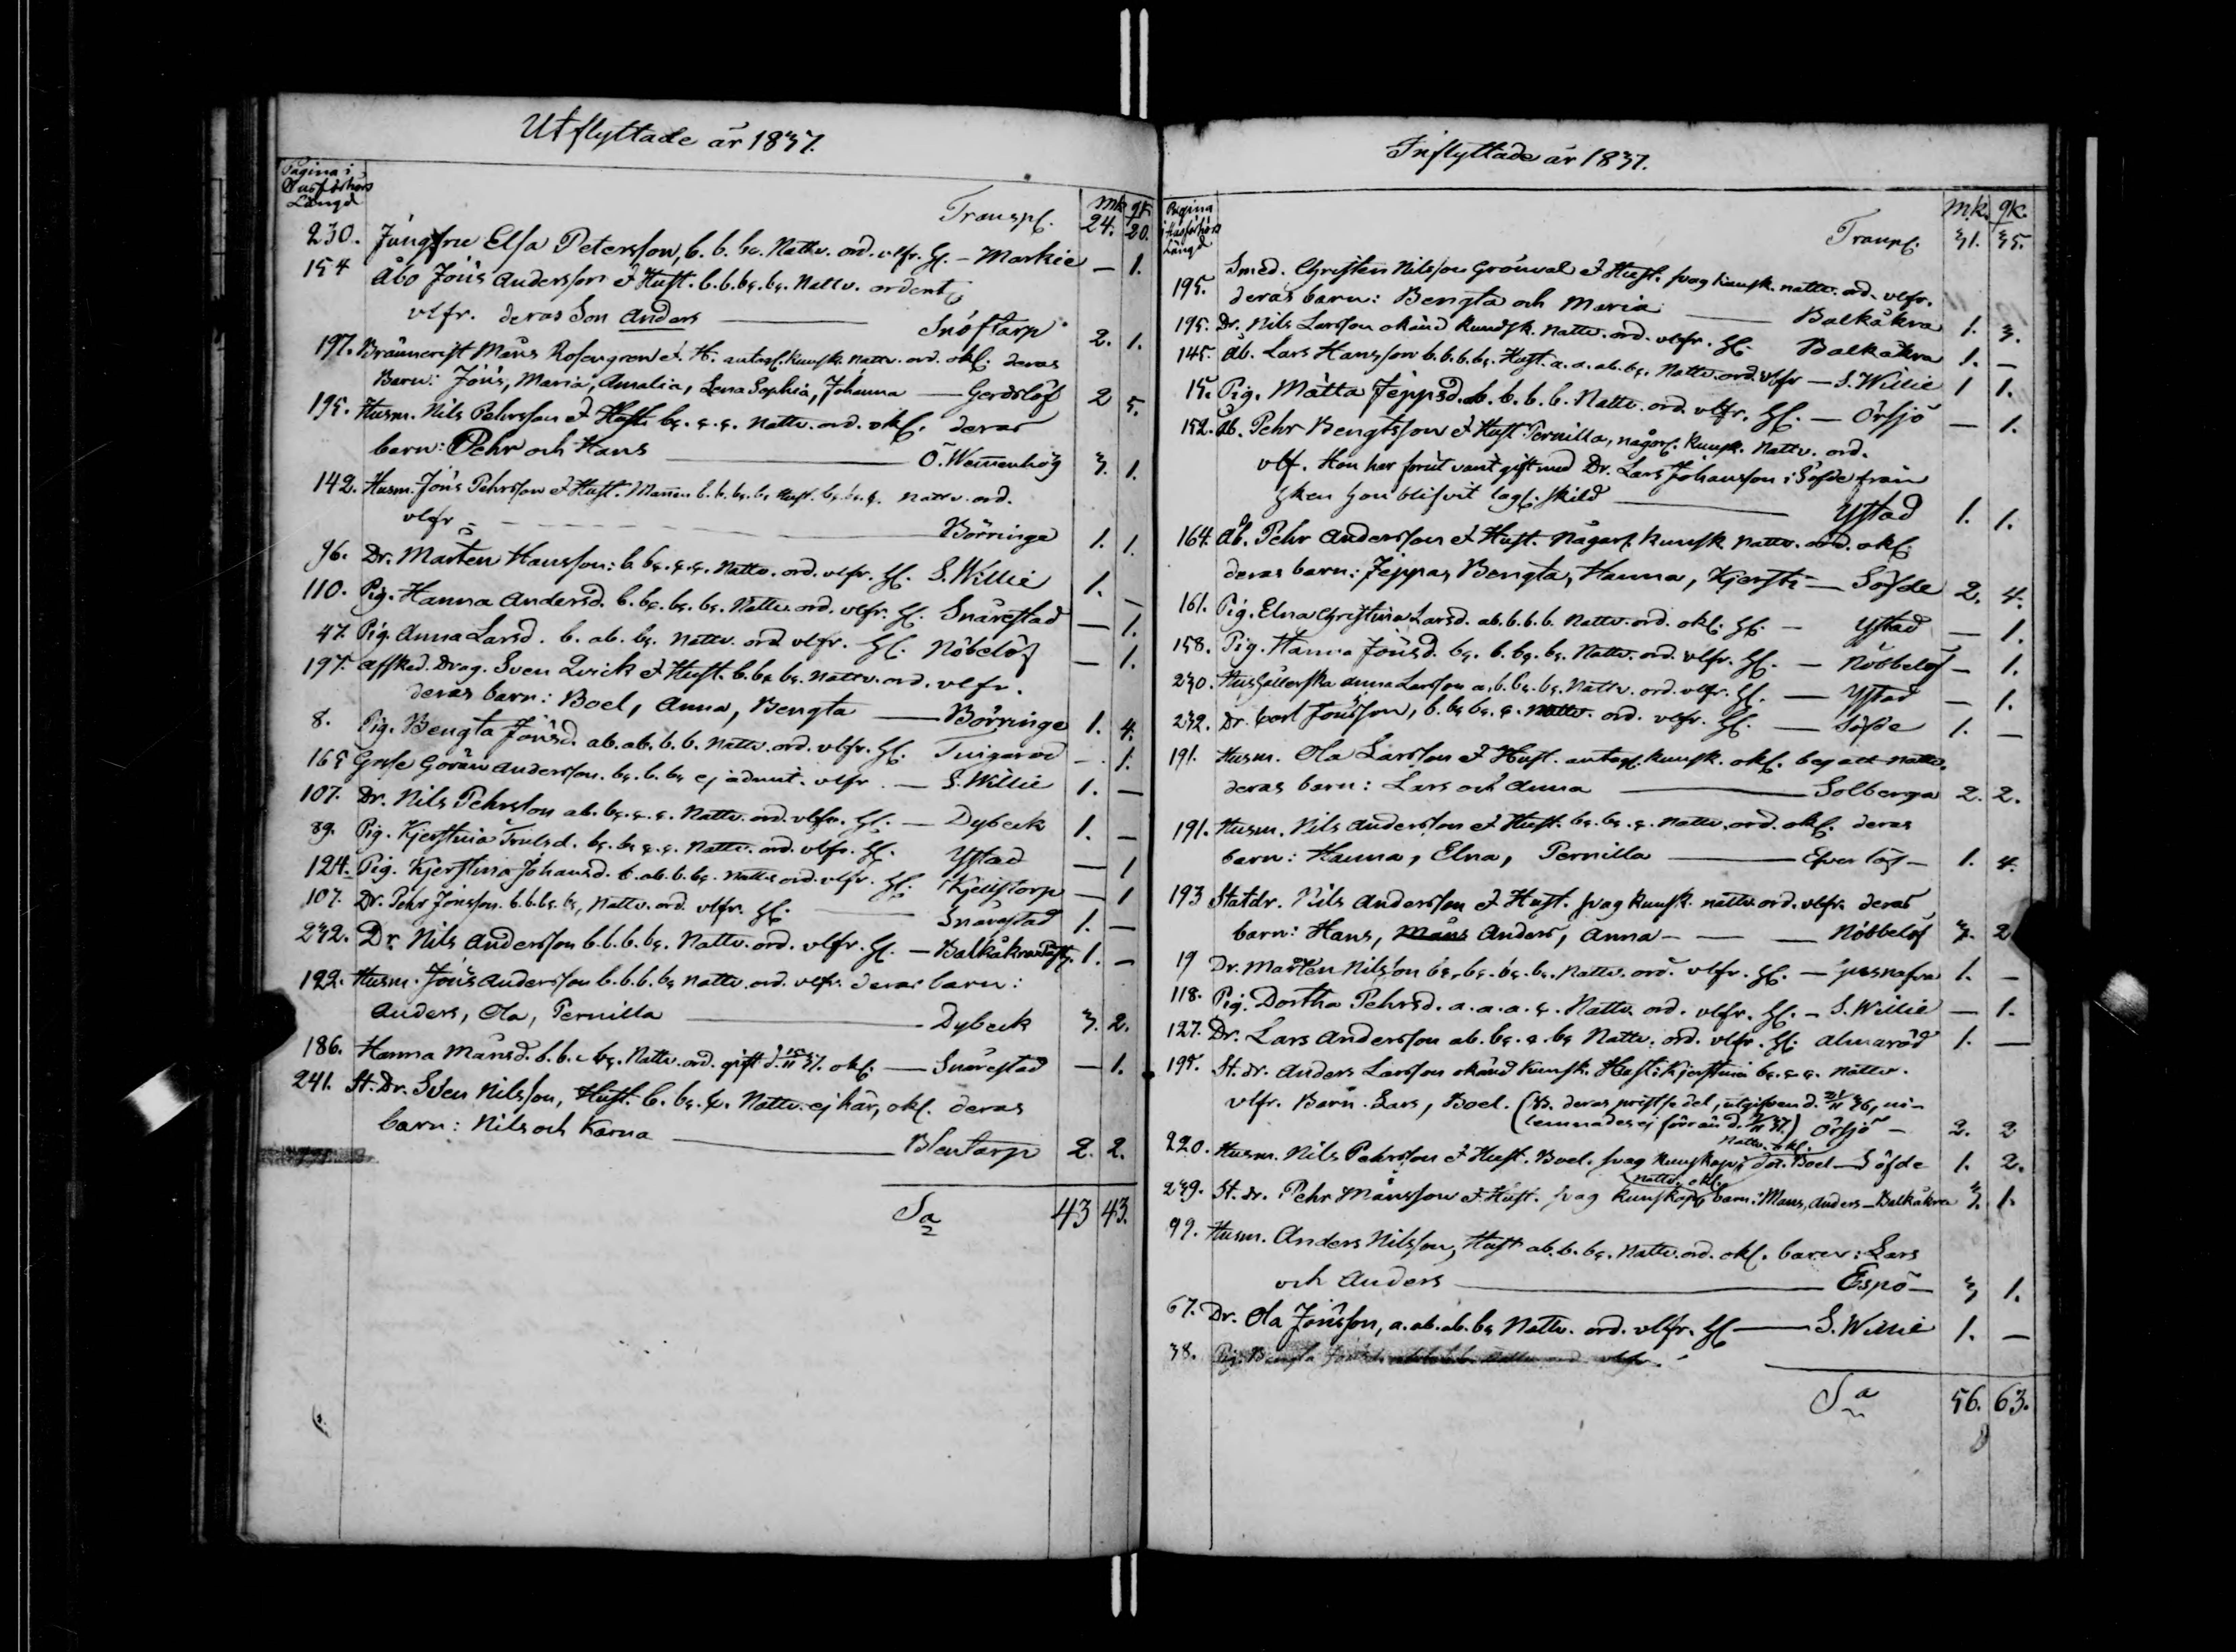 Utflyttade år 1837.
Pagina i
Husförhörs
Längd
Mk. qk.
Transp. 24. 20.
230. Jungfru Elsa Petersson, b. b. bc. Nattv. ord. vlfr. Hl. – Markie – 1.
154 Åbo Jöns Andersson & Hust. b. b. bc. bc. Nattv. ordentl.
vlfr. deras Son Anders — Snöstarp 2. 1.
197. Brännerist Måns Rosengren & H. antagl. kunsk. Nattv. ord. okl. deras
Barn: Jöns, Maria, Amalia, Lena Sophia, Johanna — Gerdslöf 2 5.
195. Husm. Nils Pehrsson & Hust. bc. c. c. Nattv. ord. okl. deras
barn: Pehr och Hans — Ö. Wemenhög 3. 1.
142. Husm. Jöns Pehrsson & Hust. Mannen b. b. bc. bc. Hust. bc. bc. c. Nattv. ord.
vlfr – Börringe 1. 1.
96. Dr. Mårten Hansson: b. bc. c. c. Nattv. ord. vlfr. Hl. S. Willie 1. –
110. Pig. Hanna Andersd. b. bc. bc. bc. Nattv. ord. vlfr. Hl. Snårestad – 1.
47. Pig. Anna Larsd. b. ab. bc. Nattv. ord vlfr. Hl. Nöbelöf – 1.
197. Afsked. Drag. Sven Qvick & Hust. b. bc bc. Nattv. ord. vlfr.
deras barn: Boel, Anna, Bengta — Börringe 1. 4.
8. Pig. Bengta Jönsd. ab. ab. b. b. Nattv. ord. vlfr. Hl. – 1.
165 Gosse Göran Andersson. bc. b. bc ej admit. vlfr. — S. Willie 1. –
107. Dr. Nils Pehrsson ab. bc. c. c. Nattv. ord. vlfr. Hl. — Dybeck 1. –
89. Pig. Kjerstina Trulsd. bc. bc c. c. Nattv. ord. vlfr. Hl. Ystad – 1
124. Pig. Kjerstina Johansd. b. ab. b. bc. Nattv. ord. vlfr. Hl. Kjellstorp – 1
107. Dr. Pehr Jönsson. b. b. bc. bc, Nattv. ord. vlfr. Hl. — Snårestad 1. –
232. Dr. Nils Andersson b. b. b. bc. Nattv. ord. vlfr. Hl. – Balkåkra 1. –
122. Husm. Jöns Andersson b. b. b. bc Nattv. ord. vlfr. deras barn:
Anders, Ola, Pernilla — Dybeck 3. 2.
186. Hanna Månsd. b. b. c bc. Nattv. ord. gift d. 37. okl. — Snårestad – 1.
241. St. Dr. Sven Nilsson, Hust. b. bc. c. Nattv. ej här, okl. deras
barn: Nils och Karna — Blentarp 2. 2.
Sa 43 43.
Inflyttade år 1837.
Pagina
i Husförhörs
Längd
Mk. qk.
Transp. 31. 35.
195. Smed. Christen Nilsson Grönval & Hust. svag kunsk. nattv. ord. vlfr.
deras barn: Bengta och Maria — Balkåkra 1. 3.
195. Dr. Nils Larsson okänd kundsk. Nattv. ord. vlfr. Hl. Balkåkra 1. –
145. Åb. Lars Hansson b. b. b. bc. Hust. a. a. ab. bc. Nattv. ord. vlfr — S. Willie 1 1.
15. Pig. Mätta Jeppsd. ab. b. b. b. Nattv. ord. vlfr. Hl. — Örsjö – 1.
152. Åb. Pehr Bengtsson & Hust Pernilla, någorl. kunsk. Nattv. ord.
vlf. Hon har förut varit gift med Dr. Lars Johansson i Söfde från
hken hon blifvit lagl. skild — Ystad 1. 1.
164. Åb. Pehr Andersson & Hust. Någorl. kunsk. Nattv. ord. okl.
deras barn: Jeppa, Bengta, Hanna, Kjersti — Söfde 2. 4.
161. Pig. Elna Christina Larsd. ab. b. b. b. Nattv. ord. okl. Hl. — Ystad – 1.
158. Pig. Hanna Jönsd. bc. b. bc. bc. Nattv. ord. vlfr. Hl. — Nöbbelöf – 1.
230. Hushållerska Anna Larsson a. b. bc. bc. Nattv. ord. vlfr. Hl. — Ystad – 1.
232. Dr. Carl Jönsson, b. bc bc. c. Nattv. ord. vlfr. Hl. — Söfde 1. –
191. Husm. Ola Larsson & Hust. antagl. kunsk. okl. beg att nattv.
deras barn: Lars och Anna — Solberga 2. 2.
191. Husm. Nils Andersson & Hust. bc. bc. c. Nattv. ord. okl. deras
barn: Hanna, Elna, Pernilla — Efverlöf – 1. 4.
193 Statdr. Nils Andersson & Hust. svag kunsk. nattv. ord. vlfr. deras
barn: Hans, Måns Anders, Anna — Nöbbelöf 3. 2
19 Dr. Mårten Nilsson bc. bc. bc. bc. Nattv. ord. vlfr. Hl. — 1. –
118. Pig. Dortha Pehrsd. a. a. a. c. Nattv. ord. vlfr. Hl. – S. Willie – 1.
127. Dr. Lars Andersson ab. bc. c. bc Nattv. ord. vlfr. Hl. Almaröd 1. –
195. St. dr. Anders Larsson okänd kunsk. Hust: Kjerstina bc. c. c. Nattv.
vlfr. Barn. Lars, Boel. (NB. deras pristsedel, utgifven d. 36, in-
lemnades ej förr än d. 37.) Örsjö – 2. 2
Nattv. okl.
220. Husm. Nils Pehrsson & Hust. Boel. svag kunskap, dot. Boel — Söfde 1. 2.
nattv. okl.
239. St. dr. Pehr Månsson & Hust. svag kunskap, barn: Måns, Anders – Balkåkra 3. 1.
99. Husm. Anders Nilsson, Hust ab. b. bc. Nattv. ord. okl. barn: Lars
och Anders — Espö – 3 1.
67. Dr. Ola Jönsson, a. ab. ab. bc Nattv. ord. vlfr. Hl — S. Willie 1. –
38. Pig. Bengta
Sa 56. 63.